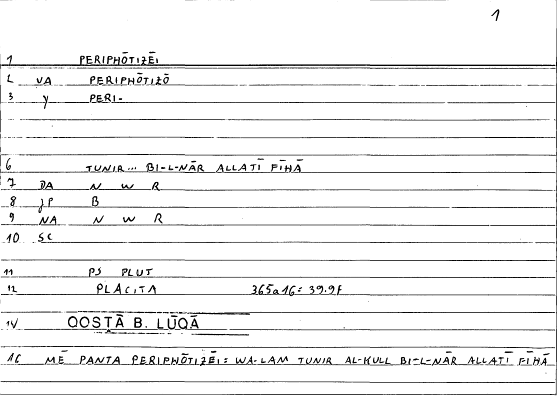 1
1 PERIPHŌTIZĒI
2 VA PERIPHŌTIZŌ
3 y PERI-
6 TUNIR... BI-L-NĀR ALLATĪ FĪHĀ
7 DA N W R
8 JP B
9 NA N W R
10 SC
11 PS PLUT
12 PLACITA 365a16= 39.9f
14 QOSṬĀ B. LŪQĀ
16 MĒ PANTA PERIPHŌTIZĒI= WA-LAM TUNIR AL-KULL BI-L-NĀR ALLATĪ FĪHĀ